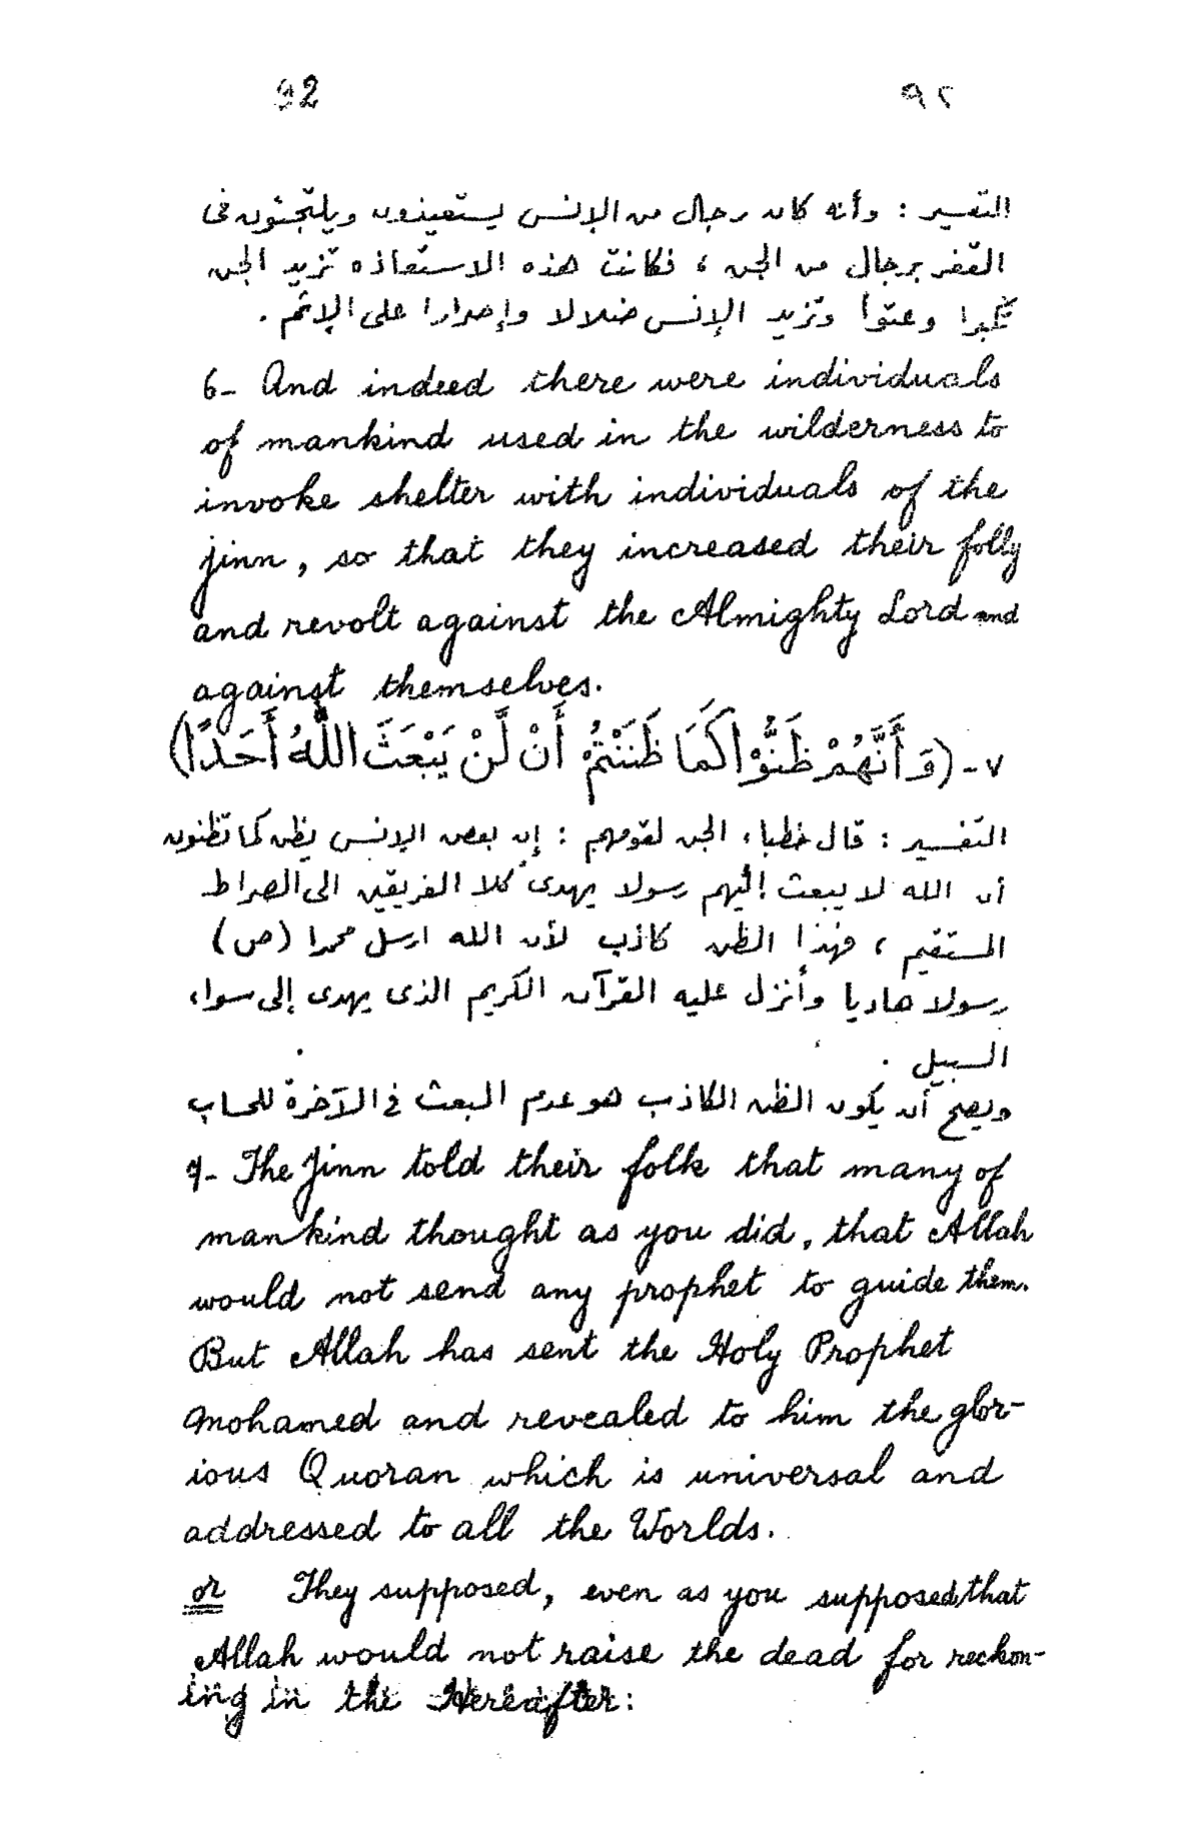 92 ٩٢
التفسير : وأنه كان رجال من الإنس يستعيذون ويلتجئون فى
القفر برجال من الجن ، فكانت هذه الاستعاذه تزيد الجن
تكبرا وعتوا وتزيد الإنس ضلالا وإصرارا على الإثم .
6- And indeed there were individuals
of mankind used in the wilderness to
invoke shelter with individuals of the
jinn, so that they increased their folly
and revolt against the Almighty Lord and
against themselves.
٧- (وَأَنَّهُمْ ظَنُّوْا كَمَا ظَنَنْتُمْ أَنْ لَّنْ يَبْعَثَ اللَّهُ أَحَدًا)
التفسير : قال خطباء الجن لقومهم : إن بعض الإنس يظن كما تظنون
أن الله لا يبعث إليهم رسولا يهدى كلا الفريقين الى الصراط
المستقيم ، فهذا الظن كاذب لأن الله ارسل محمدا (ص)
رسولا هاديا وأنزل عليه القرآن الكريم الذى يهدى إلى سواء
السبيل .
ويصح أن يكون الظن الكاذب هو عدم البعث في الآخرة للحساب
7- The Jinn told their folk that many of
mankind thought as you did, that Allah
would not send any prophet to guide them.
But Allah has sent the Holy Prophet
Mohamed and revealed to him the glor-
ious Quoran which is universal and
addressed to all the Worlds.
or They supposed, even as you supposed that
Allah would not raise the dead for reckon-
ing in the Hereafter: